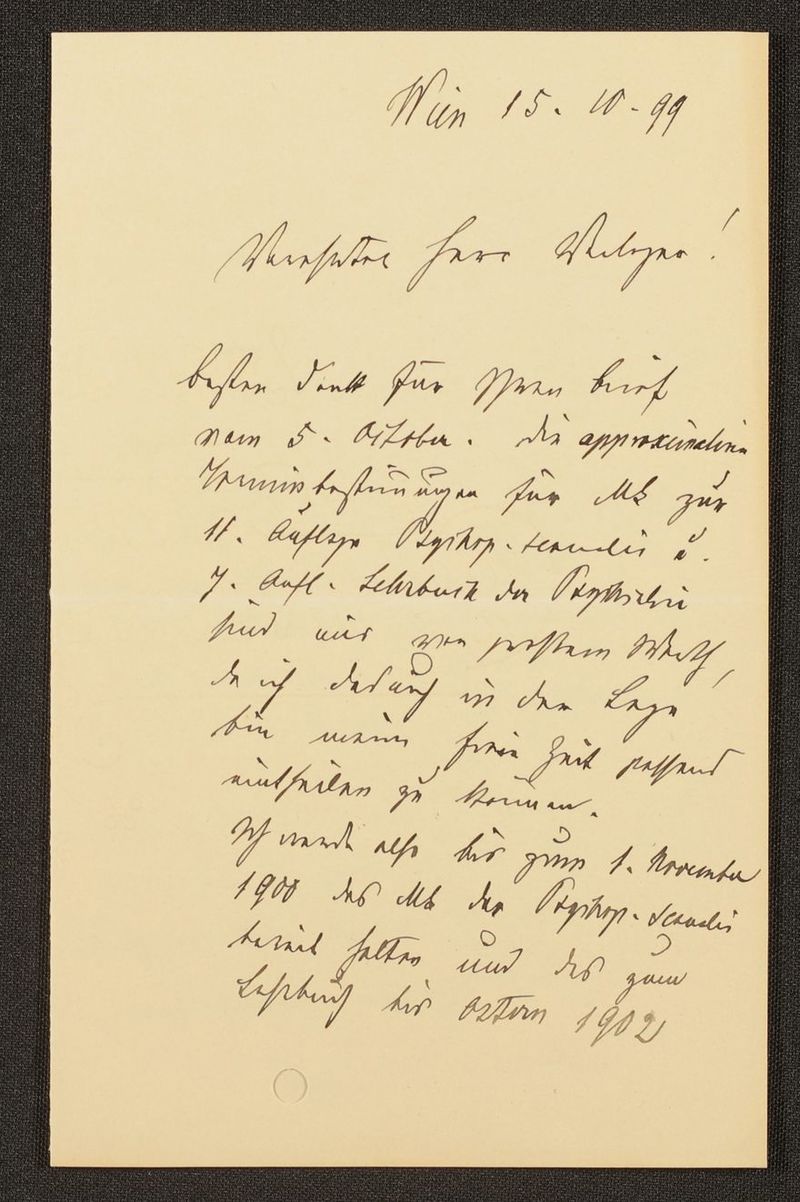 Wien 15. 10. 99
Verehrter Herr Verleger!
besten Dank für Ihren Brief
vom 5. October. Die approximativen
Terminbestimungen für Mk zur
11. Auflage Psychop. sexualis u.
7. Aufl. Lehrbuch der Psychiatrie
sind mir von grossem Werth,
da ich dadurch in der Lage
bin meine freie Zeit passend
eintheilen zu können.
Ich werde also bis zum 1. November
1900 das Mk der Psychop. sexualis
bereit halten und das zum
Lehrbuch bis Ostern 1902